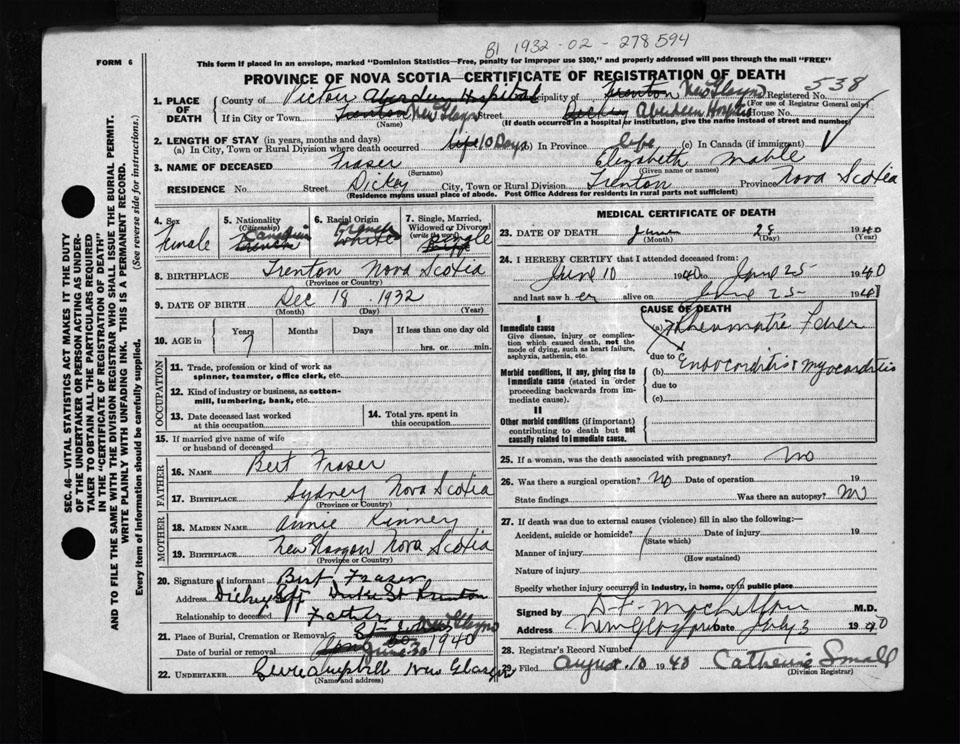 B1 1932-02-278594
FORM 6
This form if placed in an envelope, marked "Dominion Statistics—Free, penalty for improper use $300," and properly addressed will pass through the mail "FREE"
PROVINCE OF NOVA SCOTIA—CERTIFICATE OF REGISTRATION OF DEATH
538
1. PLACE OF DEATH
County of Pictou Aberdeen Hospital Municipality of Trenton New Glasgow Registered No.
(For use of Registrar General only)
If in City or Town Trenton New Glasgow Street Dickey Aberdeen Hospital House No.
(Name) (If death occurred in a hospital or institution, give the name instead of street and number)
2. LENGTH OF STAY (in years, months and days)
(a) In City, Town or Rural Division where death occurred life 10 Days (b) In Province life (c) In Canada (if immigrant)
3. NAME OF DECEASED Fraser Elizabeth Mable
(Surname) (Given name or names)
RESIDENCE No. Street Dickey City, Town or Rural Division Trenton Province Nova Scotia
(Residence means usual place of abode. Post Office Address for residents in rural parts not sufficient)
SEC. 46—VITAL STATISTICS ACT MAKES IT THE DUTY
OF THE UNDERTAKER OR PERSON ACTING AS UNDER-
TAKER TO OBTAIN ALL THE PARTICULARS REQUIRED
IN THE "CERTIFICATE OF REGISTRATION OF DEATH"
AND TO FILE THE SAME WITH THE DIVISION REGISTRAR WHO SHALL ISSUE THE BURIAL PERMIT.
WRITE PLAINLY WITH UNFADING INK. THIS IS A PERMANENT RECORD.
Every item of information should be carefully supplied. (See reverse side for instructions.)
4. Sex
Female
5. Nationality
(Citizenship)
Canadian
French
6. Racial Origin
French
White
7. Single, Married,
Widowed or Divorced
(write the word)
Single
8. BIRTHPLACE Trenton Nova Scotia
(Province or Country)
9. DATE OF BIRTH Dec 18 1932
(Month) (Day) (Year)
10. AGE in Years Months Days If less than one day old
7 hrs. or min.
OCCUPATION
11. Trade, profession or kind of work as
spinner, teamster, office clerk, etc.
12. Kind of industry or business, as cotton-
mill, lumbering, bank, etc.
13. Date deceased last worked
at this occupation
14. Total yrs. spent in
this occupation
15. If married give name of wife
or husband of deceased
FATHER
16. NAME Bert Fraser
17. BIRTHPLACE Sydney Nova Scotia
(Province or Country)
MOTHER
18. MAIDEN NAME Annie Kinney
19. BIRTHPLACE New Glasgow Nova Scotia
(Province or Country)
20. Signature of informant Bert Fraser
Address Dickey St Duke St Trenton
Relationship to deceased Father
21. Place of Burial, Cremation or Removal New Glasgow
Date of burial or removal June 30 1940
22. UNDERTAKER New Glasgow
(Name and address)
MEDICAL CERTIFICATE OF DEATH
23. DATE OF DEATH June 28 1940
(Month) (Day) (Year)
24. I HEREBY CERTIFY that I attended deceased from:
June 10 1940 to June 25 1940
and last saw her alive on June 25 194
CAUSE OF DEATH
I
Immediate cause
Give disease, injury or complication which caused death, not the mode of dying, such as heart failure, asphyxia, asthenia, etc.
(a) Rheumatic Fever
due to
Morbid conditions, if any, giving rise to immediate cause (stated in order proceeding backwards from immediate cause).
(b) Endocarditis & myocarditis
due to
(c)
II
Other morbid conditions (if important) contributing to death but not causally related to immediate cause.
25. If a woman, was the death associated with pregnancy? No
26. Was there a surgical operation? No Date of operation 19
State findings Was there an autopsy? No
27. If death was due to external causes (violence) fill in also the following:—
Accident, suicide or homicide? Date of injury 19
(State which)
Manner of injury
(How sustained)
Nature of injury
Specify whether injury occurred in industry, in home, or in public place
Signed by M.D.
Address New Glasgow Date July 3 1940
28. Registrar's Record Number
Filed August 10 1940 Catherine Small
(Division Registrar)